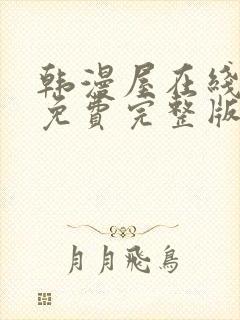 韩漫屋在线
免費完整版
月月飛鳥